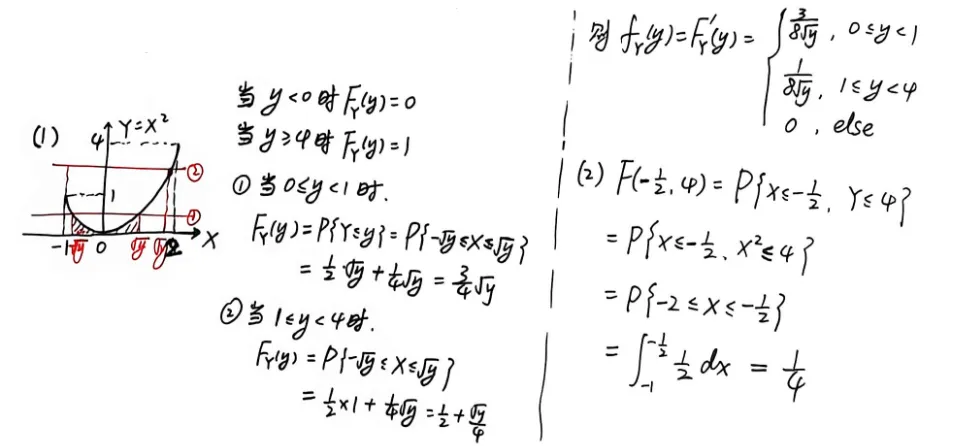 (1)
4
Y=X²
②
1
①
-1 -√y 0 √y √y 2 X
当 y<0 时 F_Y(y)=0
当 y≥4 时 F_Y(y)=1
① 当 0≤y<1 时.
F_Y(y)=P{Y≤y}=P{-√y≤X≤√y}
= 1/2·√y + 1/4√y = 3/4√y
② 当 1≤y<4 时.
F_Y(y) = P{-√y≤X≤√y}
= 1/2×1 + 1/4√y = 1/2 + √y/4
则 f_Y(y)=F_Y'(y)= { 3/(8√y), 0≤y<1
1/(8√y), 1≤y<4
0, else
(2) F(-1/2, 4) = P{X≤-1/2, Y≤4}
= P{X≤-1/2, X²≤4}
= P{-2≤X≤-1/2}
= ∫_{-1}^{-1/2} 1/2 dx = 1/4